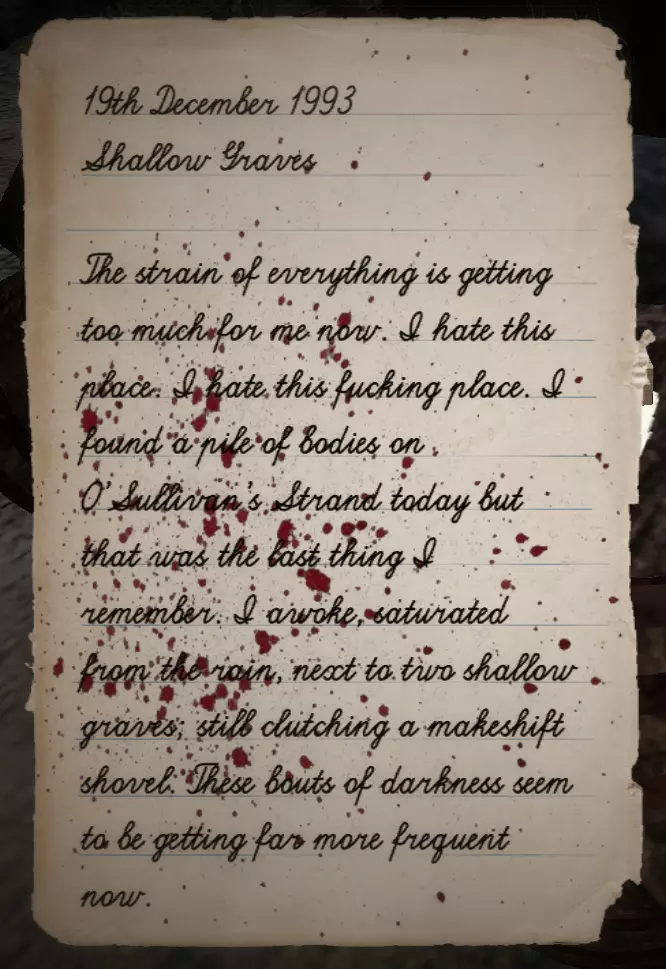 19th December 1993
Shallow Graves
The strain of everything is getting
too much for me now. I hate this
place. I hate this fucking place. I
found a pile of bodies on
O'Sullivan's Strand today but
that was the last thing I
remember. I awoke, saturated
from the rain, next to two shallow
graves; still clutching a makeshift
shovel. These bouts of darkness seem
to be getting far more frequent
now.